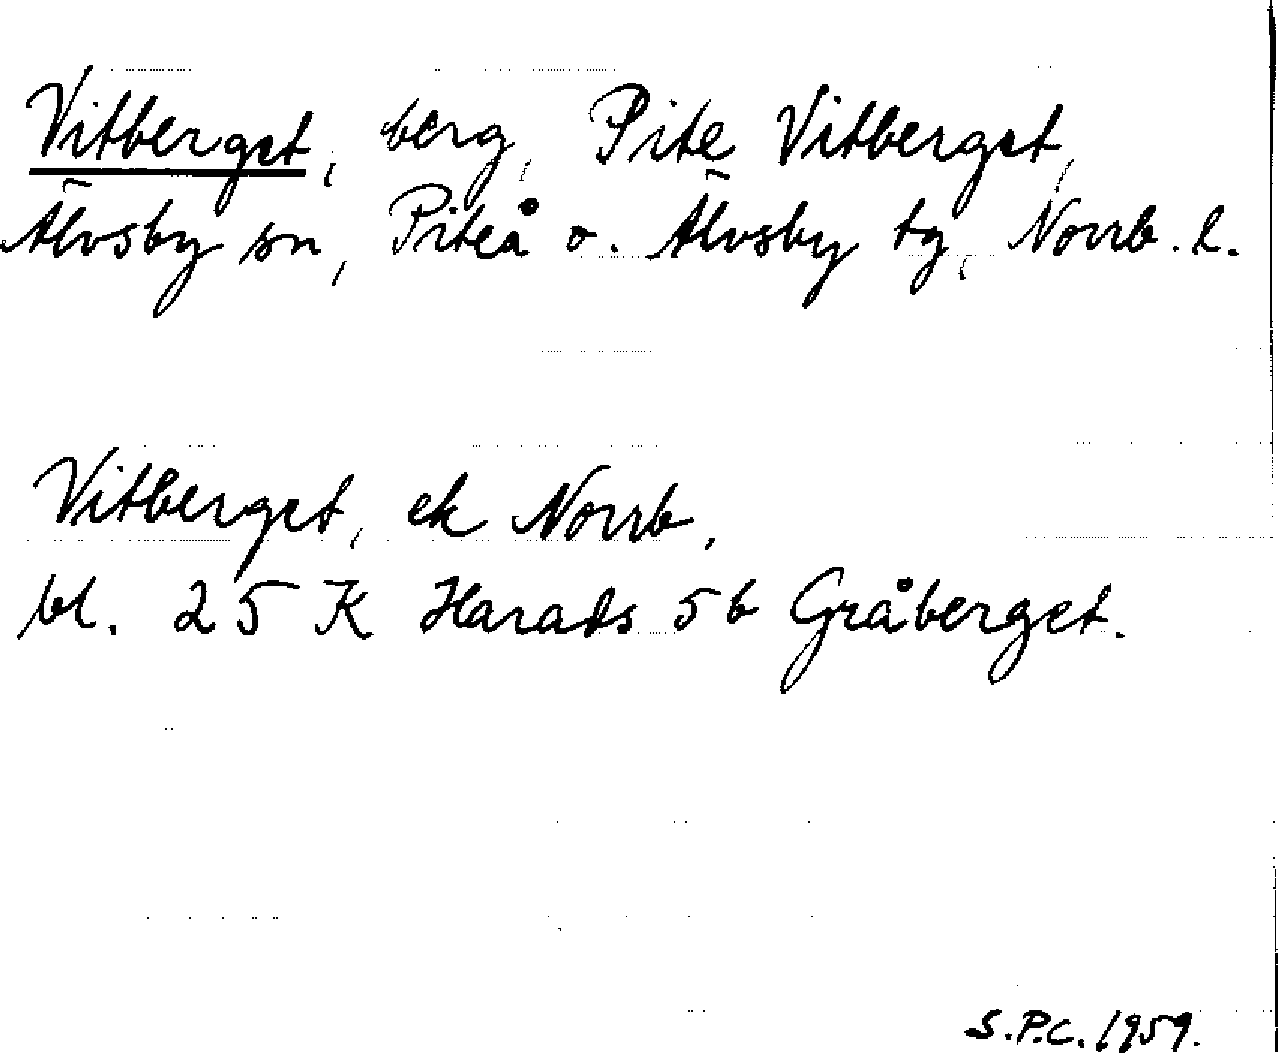 Vitberget, berg, Pite Vitberget,
Älvsby sn, Piteå o. Älvsby tg, Norrb. l.
Vitberget, ek Norrb.
bl. 25 K Harads 5b Gråberget.
S.P.C. 1959.